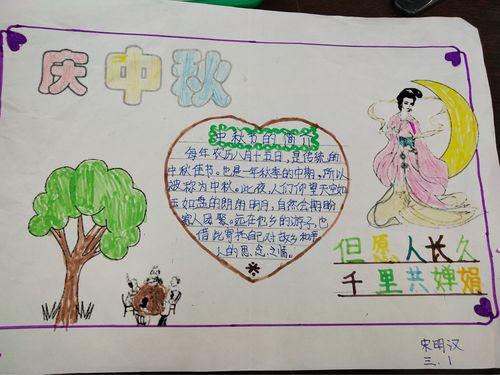 庆中秋
中秋节的简介
每年农历八月十五日，是传统的
中秋佳节。也是一年秋季的中期，所以
被称为中秋。此夜，人们仰望天空如
玉如盘的朗朗明月，自然会期盼
家人团聚。远在他乡的游子，也
借此寄托自己对故乡和亲
人的思念之情。
但愿人长久
千里共婵娟
宋明汉
三.1